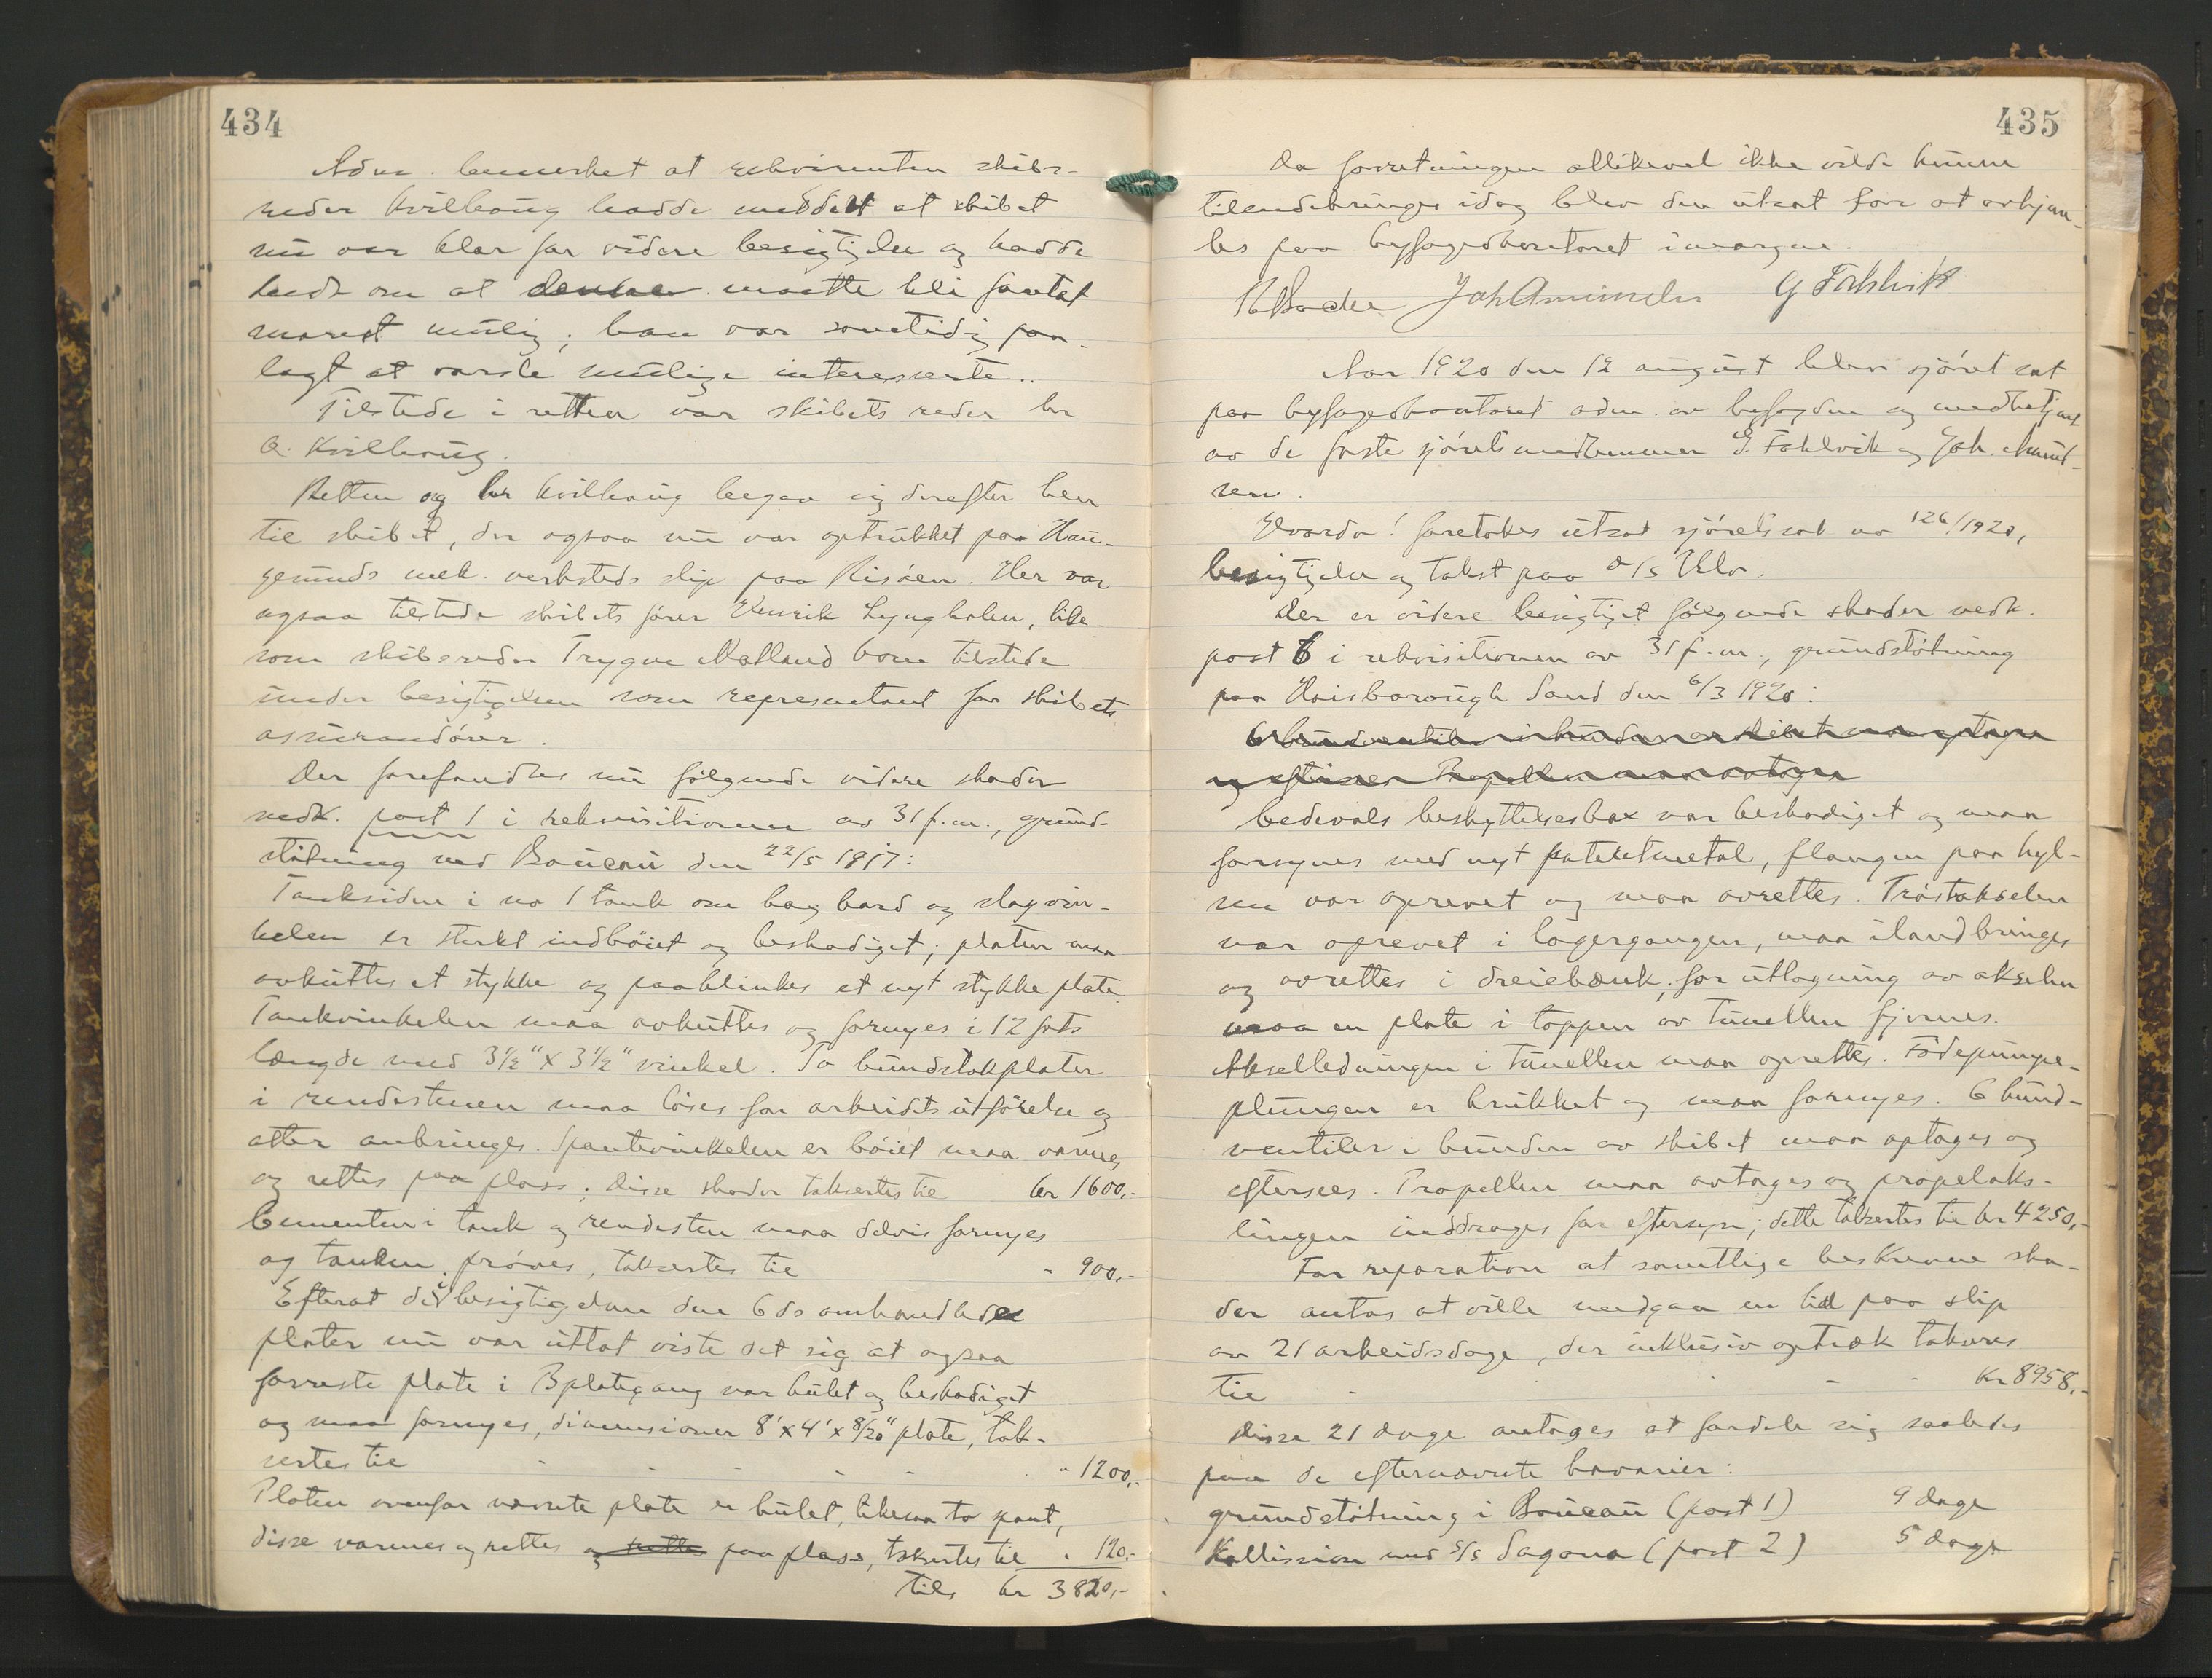 434
Adm. bemerket at rekvirenten skibs-
reder Kvilhaug hadde meddelt at skibet
nu var klar for videre besigtigelse og hadde
bedt om at denne maatte bli foretat
snarest mulig; han var samtidig paa-
lagt at varsle mulige interesserte..
Tilstede i retten var skibets reder hr
A. Kvilhaug.
Retten og hr Kvilhaug begav sig derefter hen
til skibet, der ogsaa nu var optrukket paa Hau-
gesunds mek. verksteds slip paa Risøen. Her var
ogsaa tilstede skibets fører Henrik Lyngholm, like-
som skibsreder Trygve Matland kom tilstede
under besigtigelsen som representant for skibets
assurandører.
Der forefandtes nu følgende videre skader
vedk. post 1 i rekvisitionen av 31 f.m., grund-
støtning ved Boucau den 22/5 1917:
Tanksiden i no 1 tank om bagbord og slagvin-
kelen er sterkt indbøiet og beskadiget; platen maa
avkuttes et stykke og paaklinkes et nyt stykke plate.
Tankvinkelen maa avkuttes og fornyes i 12 fots
længde med 3½" x 3½" vinkel. To bundstokplater
i rendestenen maa løses for arbeidets utførelse og
atter anbringes. Spantevinkelen er bøiet maa varmes
og rettes paa plass; disse skader taksertes til kr 1600,-
Cementen i tank og rendesten maa delvis fornyes
og tanken prøves, taksertes til " 900,-
Efterat de i besigtigelsen den 6 ds omhandlede
plater nu var uttat viste det sig at ogsaa
forreste plate i B plategang var bulet og beskadiget
og maa fornyes, dimensioner 8' x 4' x 8/20" plate, tak-
sertes til " 1200,-
Platen ovenfor nævnte plate er bulet, likesaa to spant,
disse varmes og rettes og rettes paa plass, taksertes til " 120,-
tils kr 3820,-
435
Da forretningen allikevel ikke vilde kunne
tilendebringes idag blev den utsat for at avhjem-
les paa byfogedkontoret imorgen.
Joh Amundsen G Fahlvik
Aar 1920 den 12 august blev sjøret sat
paa byfogedkontoret adm. av byfogden og medbetjent
av de faste sjøretsmedlemmer G. Fahlvik og Joh. Amund-
sen.
Hvorda! foretokes utsat sjøretssak no 126/1920,
besigtigelse og takst paa d/s Ulv.
Der er videre besigtiget følgende skader vedk.
post 6 i rekvisitionen av 31 f.m., grundstøtning
paa Haisborough Sand den 6/3 1920:
6 bundventiler i bunden av skibet maa optages
og eftersees. Propellen maa avtages
Cedervals beskyttelsesbox var beskadiget og maa
forsynes med nyt patentmetal, flangen paa hyl-
sen var oprevet og maa avrettes. Trøstakselen
var oprevet i lagergangen, maa ilandbringes
og avrettes i dreiebænk; for uttagning av akselen
maa en plate i toppen av tunellen fjernes.
Akselledningen i tunellen maa oprettes. Fødepumpe-
plunger er brukket og maa fornyes. 6 bund-
ventiler i bunden av skibet maa optages og
eftersees. Propellen maa avtages og propelaks-
lingen inddrages for eftersyn; dette taksertes til kr 4250,-
For reparation at samtlige beskrevne ska-
der antas at ville medgaa en tid paa slip
av 21 arbeidsdage, der inklusiv optræk takseres
til kr 8958,-
Disse 21 dage antages at fordele sig saaledes
paa de efternævnte havarier:
grundstøtning i Boucau (post 1) 9 dage
Kollission med s/s Sagona (post 2) 5 dage